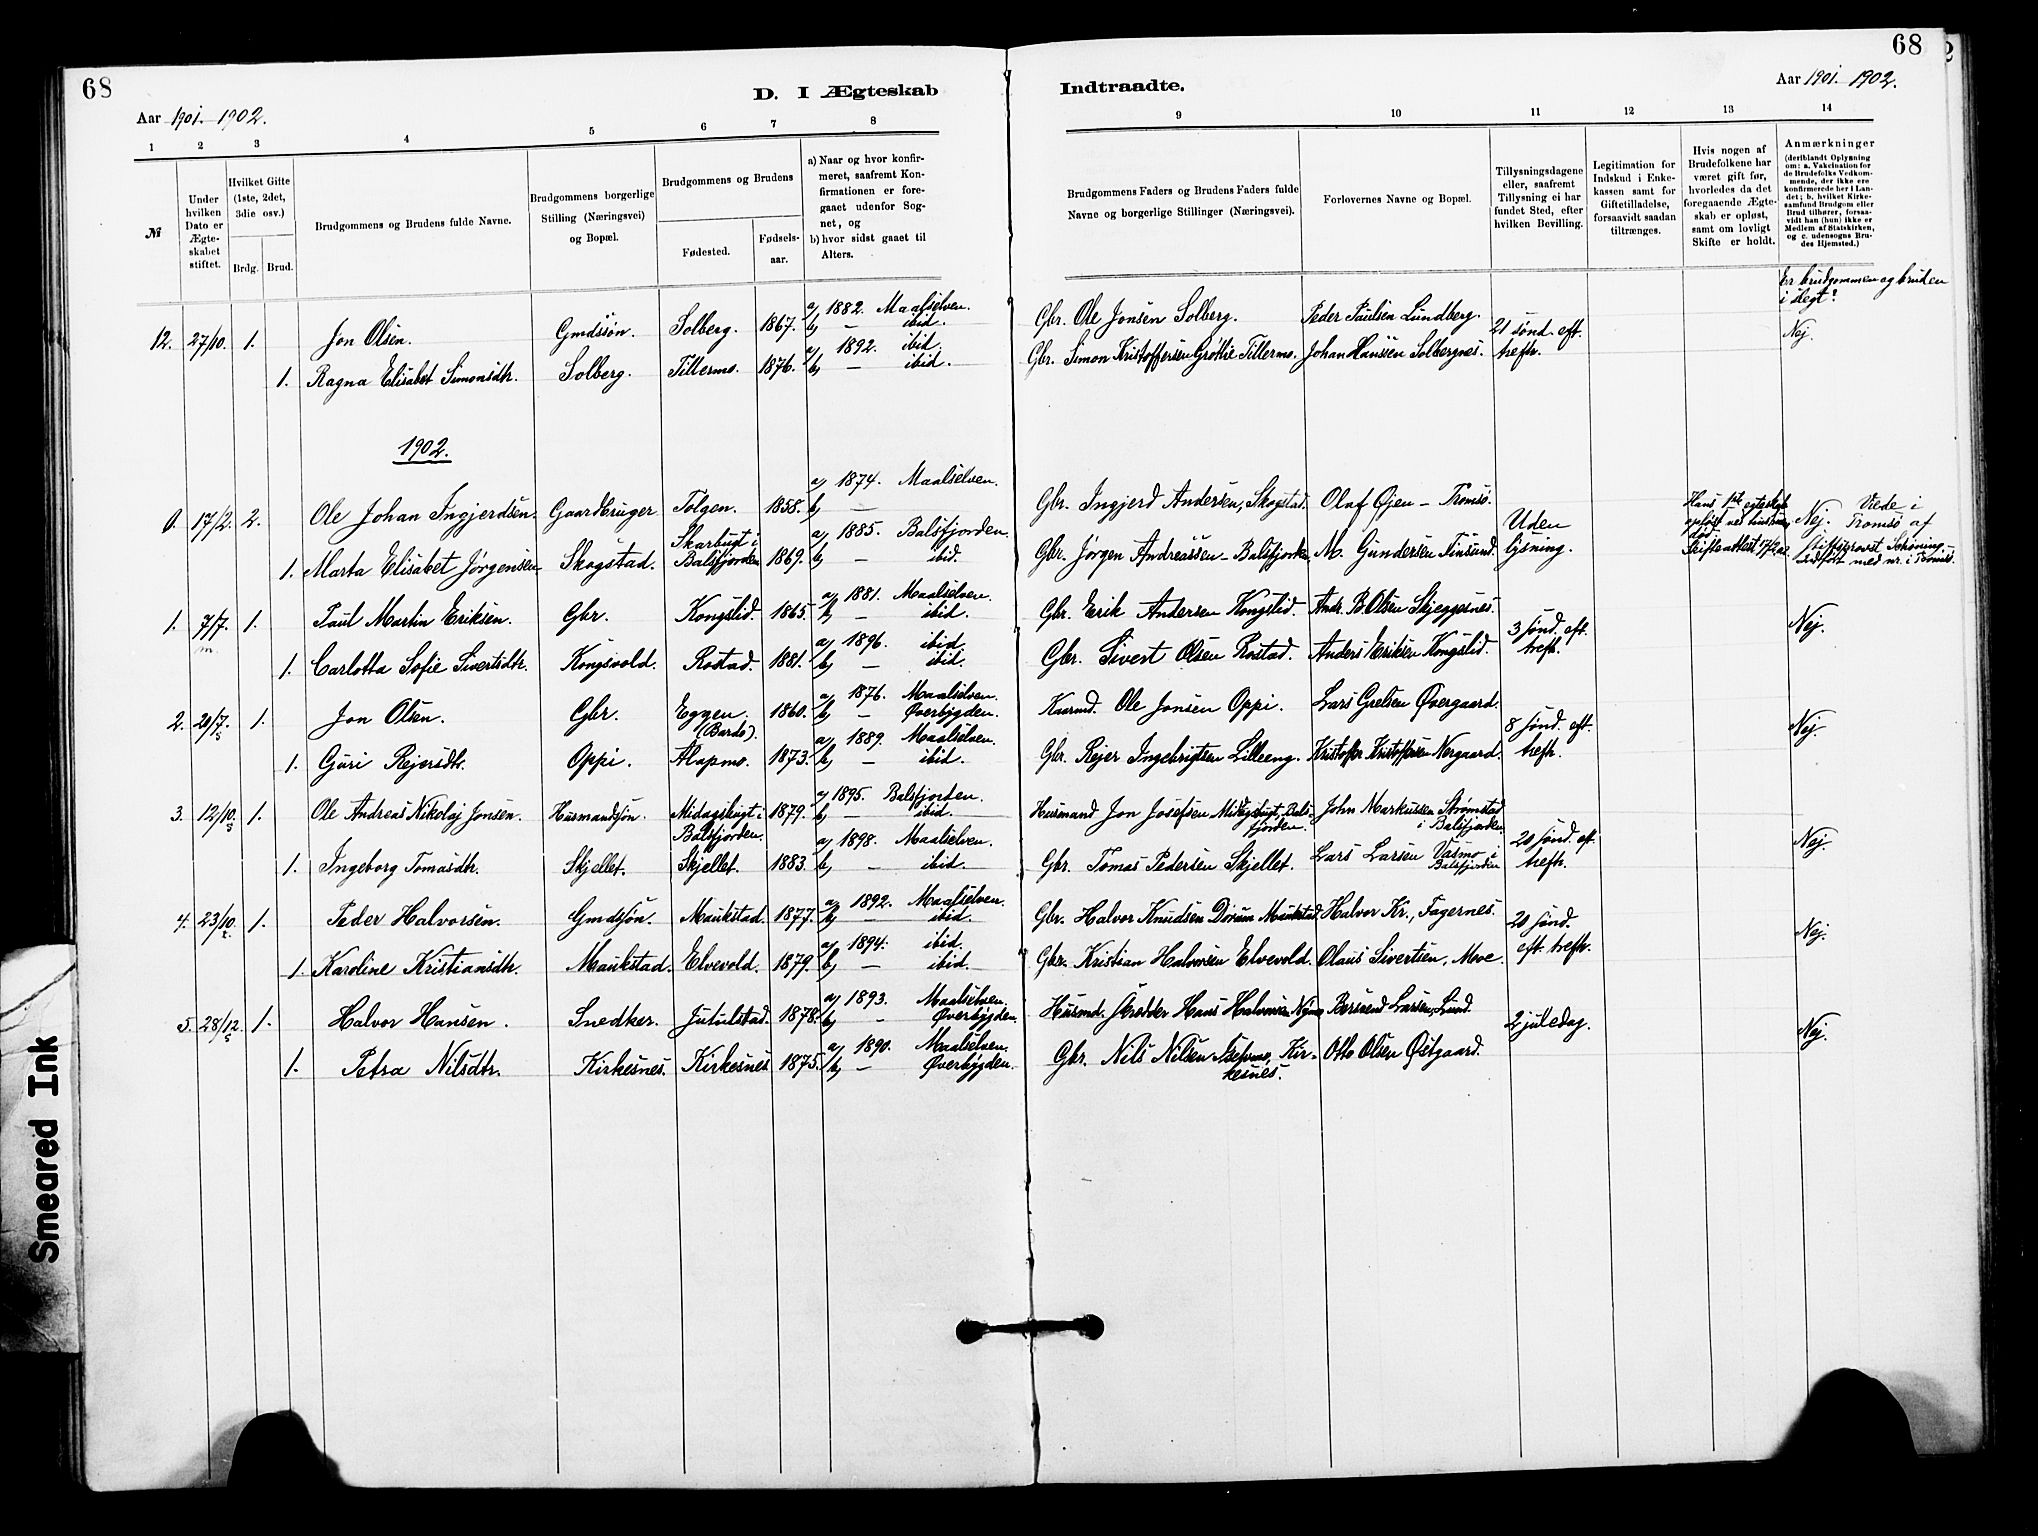 68
Aar 1901. 1902.
D. I Ægteskab
1 2 3 4 5 6 7 8
№
Under hvilken Dato er Ægteskabet stiftet.
Hvilket Gifte (1ste, 2det, 3die osv.)
Brdg. Brud.
Brudgommens og Brudens fulde Navne.
Brudgommens borgerlige Stilling (Næringsvei) og Bopæl.
Brudgommens og Brudens
Fødested.
Fødsels-aar.
a) Naar og hvor konfirmeret, saafremt Konfirmationen er foregaaet udenfor Sognet, og
b) hvor sidst gaaet til Alters.
12. 27/10. 1. Jon Olsen. Gmdssøn. Solberg. 1867. a) 1882. Maalselven.
b) — ibid.
1. Ragna Elisabet Simonsdtr. Solberg. Tillermo. 1876. a) 1892. ibid.
b) — ibid.
1902.
0. 17/2. 2. Ole Johan Ingjerdsen. Gaardbruger Tolgen. 1858. a) 1874. Maalselven.
b) —
1. Marta Elisabet Jørgensen Skogstad. Skarbugt i Balsfjorden 1869. a) 1885. Balsfjorden.
b) — ibid.
1. 7/7. 1. Paul Martin Eriksen. Gbr. Kongslid. 1865. a) 1881. Maalselven.
b) — ibid.
1. Carlotta Sofie Sivertsdtr. Kongsvold. Rostad. 1881. a) 1896. ibid.
b) — ibid.
2. 20/7. 1. Jon Olsen. Gbr. Eggen. (Bardo). 1860. a) 1876. Maalselven.
b) — Øverbygden.
1. Guri Rejersdtr. Oppi. Alapmo. 1873. a) 1889. Maalselven.
b) — ibid.
3. 12/10. 1. Ole Andreas Nikolaj Jonsen. Husmandssøn. Midagsbugt i Balsfjorden. 1879. a) 1895. Balsfjorden.
b) — ibid.
1. Ingeborg Tomasdtr. Skjellet. Skjellet. 1883. a) 1898. Maalselven.
b) — ibid.
4. 23/10. 1. Peder Halvorsen. Gmdssøn. Maukstad. 1877. a) 1892. Maalselven.
b) — ibid.
1. Karoline Kristiansdtr. Maukstad. Elvevold. 1879. a) 1894. ibid.
b) — ibid.
5. 28/12. 1. Halvor Hansen. Snedker. Jutulstad. 1878. a) 1893. Maalselven.
b) — Øverbygden.
1. Petra Nilsdtr. Kirkesnes. Kirkesnes 1875. a) 1890. Maalselven.
b) — Øverbygden.
68
Aar 1901. 1902.
Indtraadte.
9 10 11 12 13 14
Brudgommens Faders og Brudens Faders fulde Navne og borgerlige Stillinger (Næringsvei).
Forlovernes Navne og Bopæl.
Tillysningsdagene eller, saafremt Tillysning ei har fundet Sted, efter hvilken Bevilling.
Legitimation for Indskud i Enkekassen samt for Giftetilladelse, forsaavidt saadan tiltrænges.
Hvis nogen af Brudefolkene har været gift før, hvorledes da det foregaaende Ægteskab er opløst, samt om lovligt Skifte er holdt.
Anmærkninger
(deriblandt Oplysning om: a. Vakcination for de Brudefolks Vedkommende, der ikke ere konfirmerede her i Landet; b. hvilket Kirkesamfund Brudgom eller Brud tilhører, forsaavidt han (hun) ikke er Medlem af Statskirken, og c. udensogns Brudes Hjemsted.)
Er brudgommen og bruden i slegt?
Gbr. Ole Jonsen Solberg. Peder Paulsen Lundberg. 21 sønd. eft. trefh. Nej.
Gbr. Simon Kristoffersen Grøtlie Tillermo. Johan Hanssen Solbergnes.
Gbr. Ingjerd Andersen, Skogstad. Olaf Øjen – Tromsø. Uden lysning.
Gbr. Jørgen Andreassen – Balsfjorden M. Gundersen Finsund.
Hans 1ste egteskab opløst ved hustruens død Skifteattest 17/2 02.
Nej. Viede i Tromsø af Stiftsprovst
Gbr. Erik Andersen Kongslid. Andr. B. Olsen Skjeggesnes. 3 sønd. eft. trefh. Nej.
Gbr. Sivert Olsen Rostad. Anders Eriksen Kongslid.
Kaarmd. Ole Jonsen Oppi. Lars Grelsen Øvergaard. 8 sønd. eft. trefh. Nej.
Gbr. Rejer Ingebrigtsen Lilleeng. Kristoffer Kristoffersen Nergaard.
Husmand Jon Josefsen Midagsbugt, Balsfjorden. John Markussen Strømstad i Balsfjorden. 20 sønd. eft. trefh. Nej.
Gbr. Tomas Pedersen Skjellet. Lars Larsen Vasmo i Balsfjorden
Gbr. Halvor Knudsen Maukstad. Halvor Kr., Fagernes. 20 sønd. eft. trefh. Nej.
Gbr. Kristian Halvorsen Elvevold. Olaus Sivertsen, Move.
Husmd. Skredder Hans Halvorsen Bersvend Larsen, Lund. 2 juledag. Nej.
Gbr. Nils Nilsen Kirkesnes. Otto Olsen Østgaard.
Smeared Ink